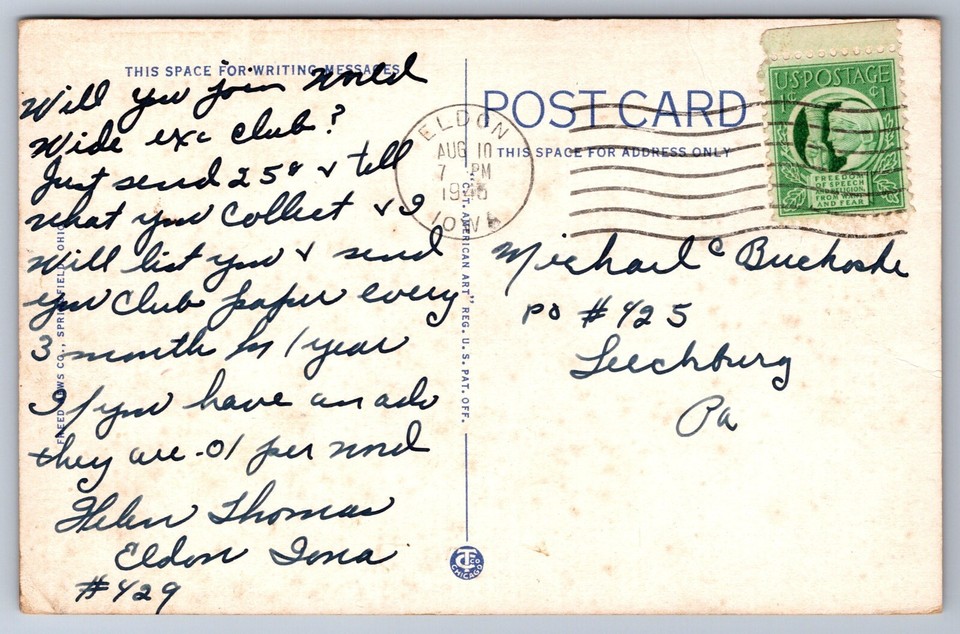 THIS SPACE FOR WRITING MESSAGES
Will you join World
Wide exc club?
Just send 25¢ & tell
what you collect & I
will list you & send
you club paper every
3 month for 1 year
If you have an adv
they are .01 per word
Helen Thomas
Eldon Iowa
#429
FREED NEWS CO., SPRINGFIELD, OHIO
"C.T. AMERICAN ART" REG. U.S. PAT. OFF.
CT CO
CHICAGO
POST CARD
THIS SPACE FOR ADDRESS ONLY
ELDON
AUG 10
7 PM
1945
IOWA
U.S. POSTAGE
1¢ ¢1
FREEDOM
OF SPEECH
AND RELIGION,
FROM WANT
AND FEAR
Michael C Buchoski
PO #425
Leechburg
Pa